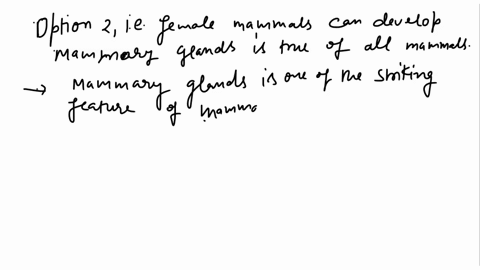 Option 2, i.e. female mammals can develop
Mammary glands is true of all mammals.
→ Mammary glands is one of the striking
feature of mamma